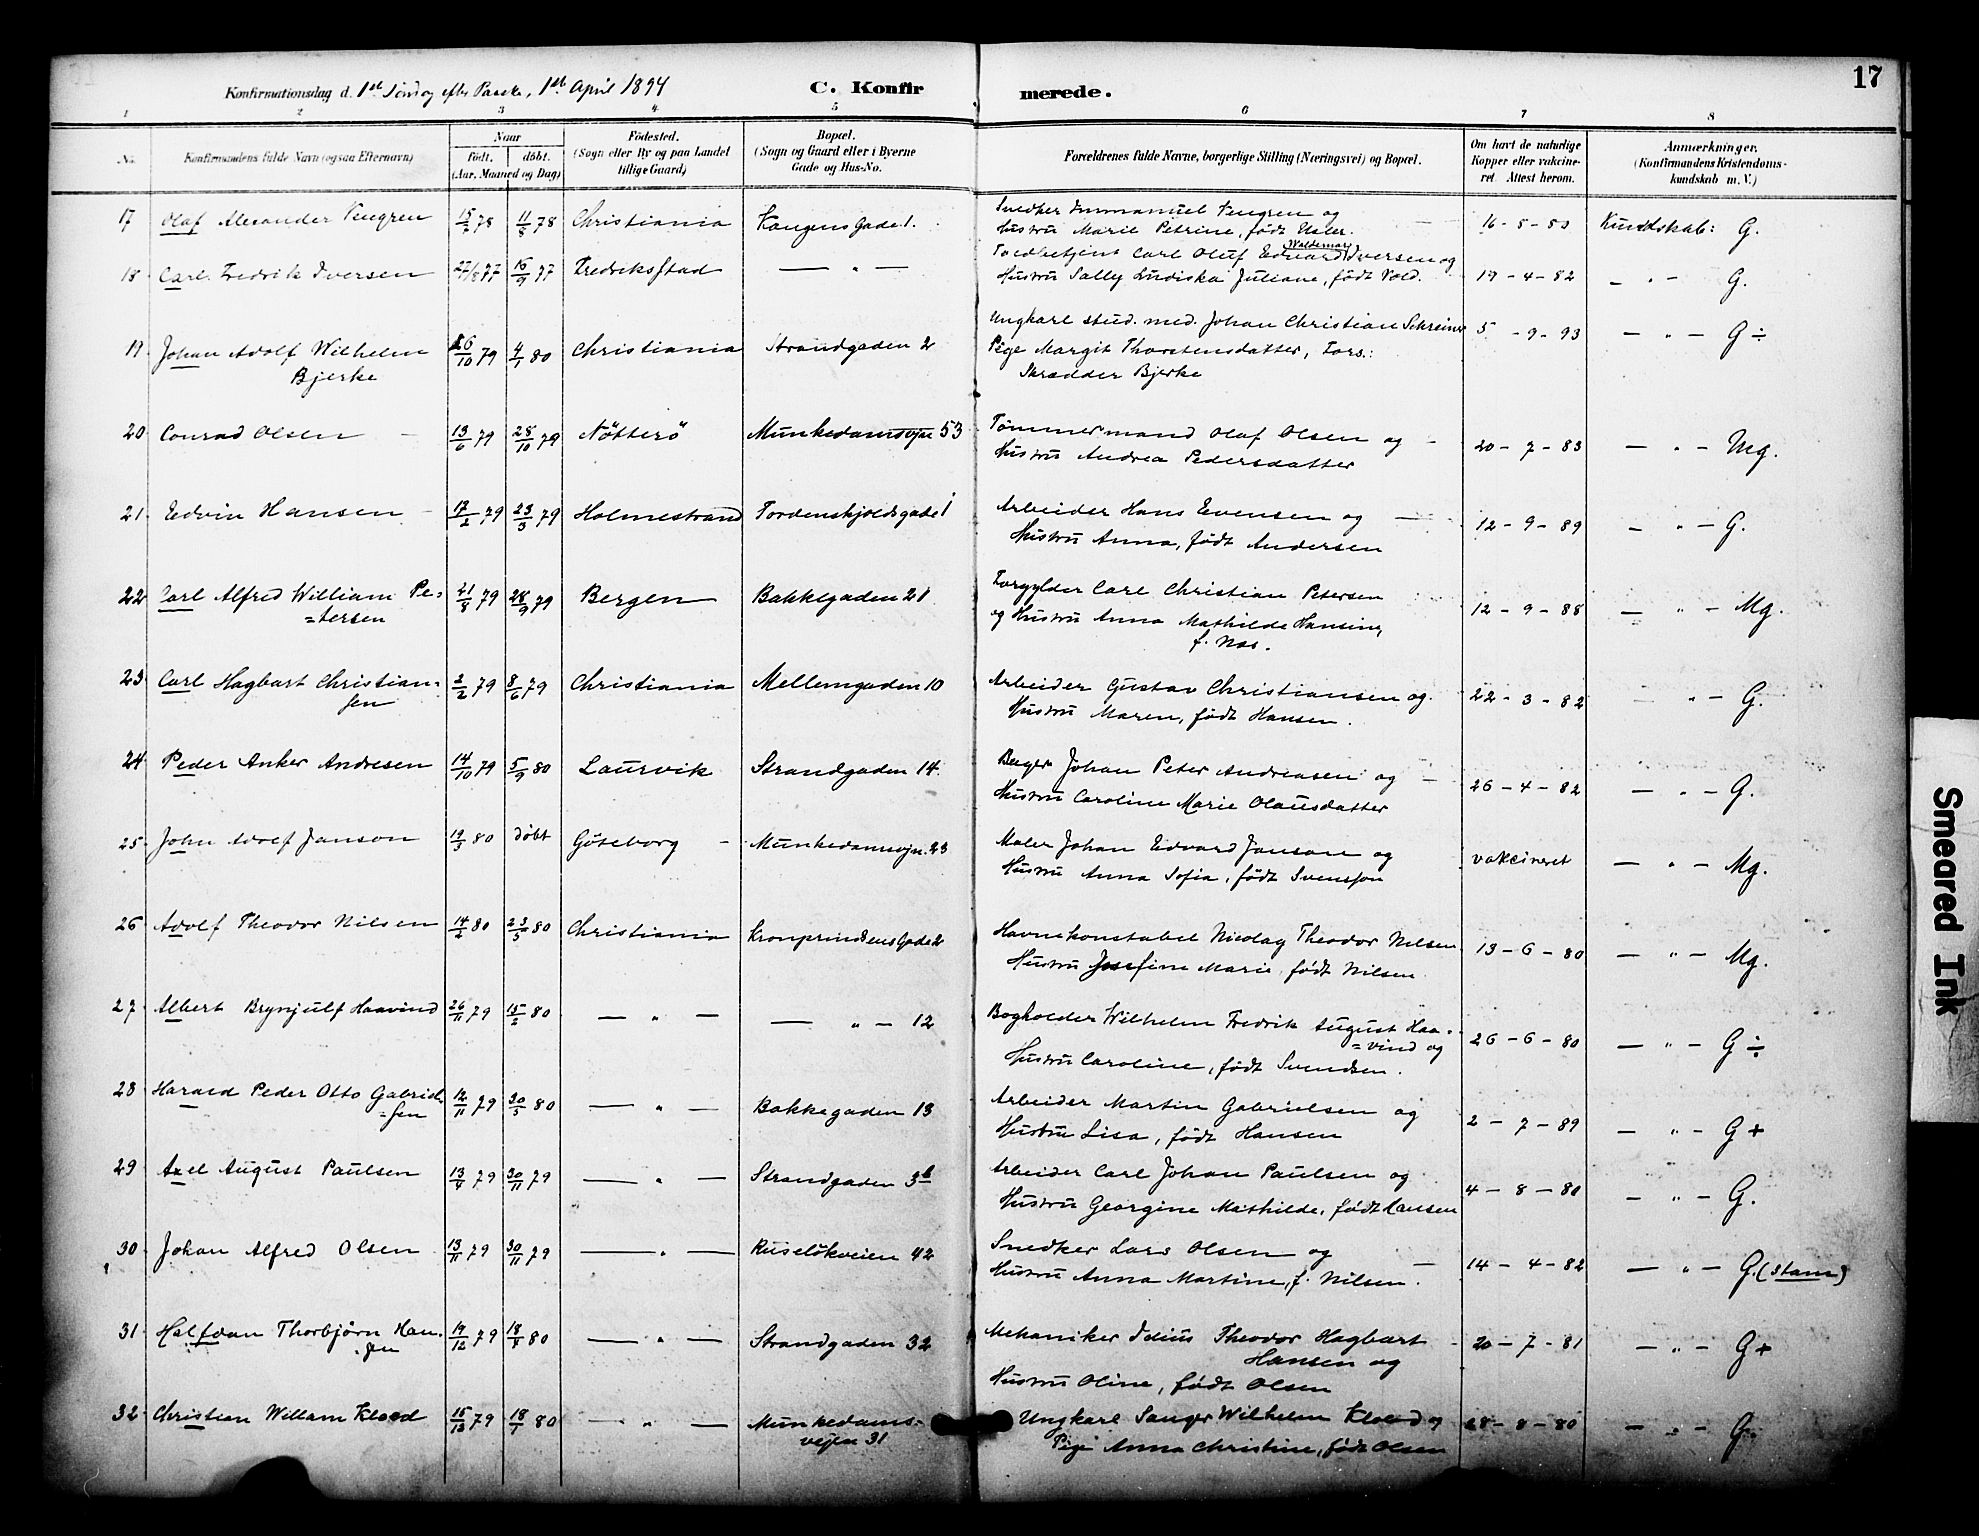 17
Konfirmationsdag d. 1st Söndag efter Paaske, 1st April 1894
C. Konfirmerede.
1 2 3 4 5 6 7 8
No.
Konfirmandens fulde Navn (ogsaa Efternavn)
Naar
födt. döbt.
(Aar, Maaned og Dag)
Födested.
(Sogn eller By og paa Landet
tillige Gaard)
Bopæl.
(Sogn og Gaard eller i Byerne
Gade og Hus-No.
Forældrenes fulde Navne, borgerlige Stilling (Næringsvei) og Bopæl.
Om havt de naturlige
Kopper eller vakcine-
ret. Attest herom.
Anmærkninger.
(Konfirmandens Kristendoms-
kundskab m. V.)
17 Olaf Alexander Vengren 15/7 78 11/8 78 Christiania Kongens Gade 1. Snedker Immanuel Vengren og 16-8-83 Kundskab: G.
Hustru Marie Petrine, født
18 Carl Fredrik Iversen 27/8 77 16/9 77 Fredriksstad — " — Toldbetjent Carl Oluf Edvard Waldemar Iversen og
Hustru Sally Ludiska Juliane, født Vold. 17-4-82 — " — G.
19 Johan Adolf Wilhelm 26/10 79 4/1 80 Christiania Strandgaden 2 Ungkarl stud. med. Johan Christian Schreiner 5-9-93 — " — G ÷
Bjerke Pige Margit Thorstensdatter, Fors.:
Skrædder Bjerke
20 Conrad Olsen 13/6 79 28/10 79 Nötterö Munkedamsvjn 53 Tömmermand Olaf Olsen og 20-7-83 — " — Mg.
Hustru Andrea Pedersdatter
21 Edvin Hansen 17/2 79 23/3 79 Holmestrand Tordenskjoldsgade 1 Arbeider Hans Evensen og 12-9-89 — " — G.
Hustru Anna, født Andersen
22 Carl Alfred William Pe= 21/8 79 28/9 79 Bergen Bakkegaden 21 Forgylder Carl Christian Petersen 12-9-88 — " — Mg.
=tersen og Hustru Anna Mathilde Hansine,
f. Næs.
23 Carl Hagbart Christian= 2/2 79 8/6 79 Christiania Mellemgaden 10 Arbeider Gustav Christiansen og 22-3-82 — " — G.
sen Hustru Maren, født Hansen.
24 Peder Anker Andresen 14/10 79 5/9 80 Laurvik Strandgaden 14. Bager Johan Peter Andreasen og 26-4-82 — " — G.
Hustru Caroline Marie Olausdatter
25 John Adolf Janson 19/3 80 döbt Göteborg Munkedamsvjn. 23 Maler Johan Edvard Janson og vakcineret — " — Mg.
Hustru Anna Sofia, født Svensson
26 Adolf Theodor Nilsen 14/2 80 23/5 80 Christiania Kronprindsens Gade 2 Havnekonstabel Nicolay Theodor Nilsen 13-6-80 — " — Mg.
Hustru Josefine Marie, født Nilsen
27 Albert Brynjulf Haavind 26/11 79 15/2 80 — " — — " — 12 Bogholder Wilhelm Fredrik August Haa= 26-6-80 — " — G ÷
=vind og
Hustru Caroline, født Svendsen.
28 Harald Peder Otto Gabriel= 12/11 79 30/5 80 — " — Bakkegaden 13 Arbeider Martin Gabrielsen og 2-7-89 — " — G +
=sen Hustru Lisa, født Hansen
29 Axel August Paulsen 13/4 79 30/11 79 — " — Strandgaden 3b Arbeider Carl Johan Paulsen og 4-8-80 — " — G.
Hustru Georgine Mathilde, født Larsen
30 Johan Alfred Olsen 13/11 79 30/11 79 — " — Ruselökveien 42 Snedker Lars Olsen og 14-4-82 — " — G. (stam)
Hustru Anna Martine, f. Nilsen.
31 Halfdan Thorbjørn Han= 19/12 79 18/4 80 — " — Strandgaden 32 Mekaniker Theodor Hagbart 20-7-81 — " — G +
sen Hansen og
Hustru Oline, født Olsen
32 Christian Willam Kloed 15/12 79 18/1 80 — " — Munkedams- Ungkarl Sanger Wilhelm Kloed og 28-8-80 — " — G.
vejen 31 Pige Anna Christine, født Olsen
Smeared Ink